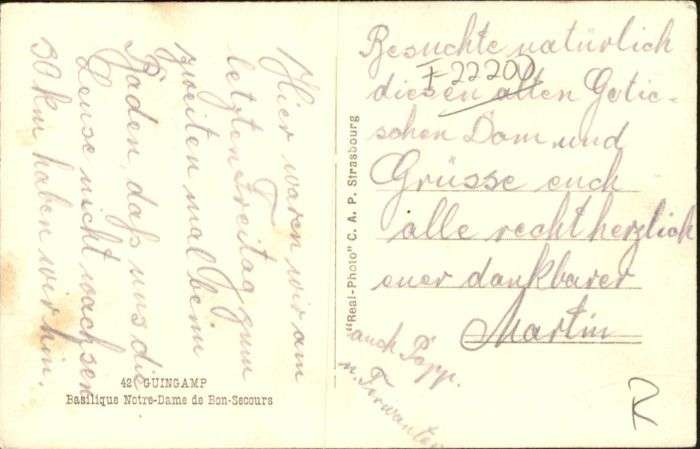 Hier waren wir am
letzten Freitag zum
zweiten mal beim
Baden, daß uns die
Leuse nicht wachsen
30 km haben wir hin.
42 GUINGAMP
Basilique Notre-Dame de Bon-Secours
"Real-Photo" C. A. P. Strasbourg
Besuchte natürlich
F-22200
diesen alten Gotic-
schen Dom und
Grüsse euch
alle recht herzlich
euer dankbarer
Martin
auch Popp.
u.